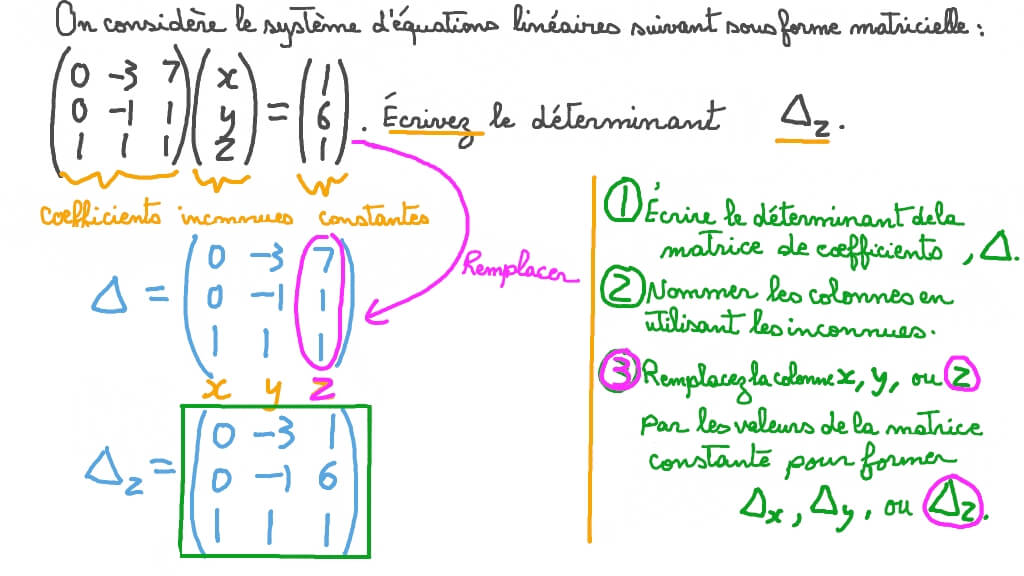 On considère le système d'équations linéaires suivant sous forme matricielle :
(0 -3 7) (x) = (1)
(0 -1 1) (y) (6) . Écrivez le déterminant Δz.
(1 1 1) (z) (1)
coefficients inconnues constantes
Δ = (0 -3 7)
(0 -1 1)
(1 1 1)
x y z
Remplacer
Δz = (0 -3 1)
(0 -1 6)
(1 1 1)
① Écrire le déterminant de la
matrice de coefficients , Δ.
② Nommer les colonnes en
utilisant les inconnues.
③ Remplacez la colonne x, y, ou z
par les valeurs de la matrice
constante pour former
Δx, Δy, ou Δz.